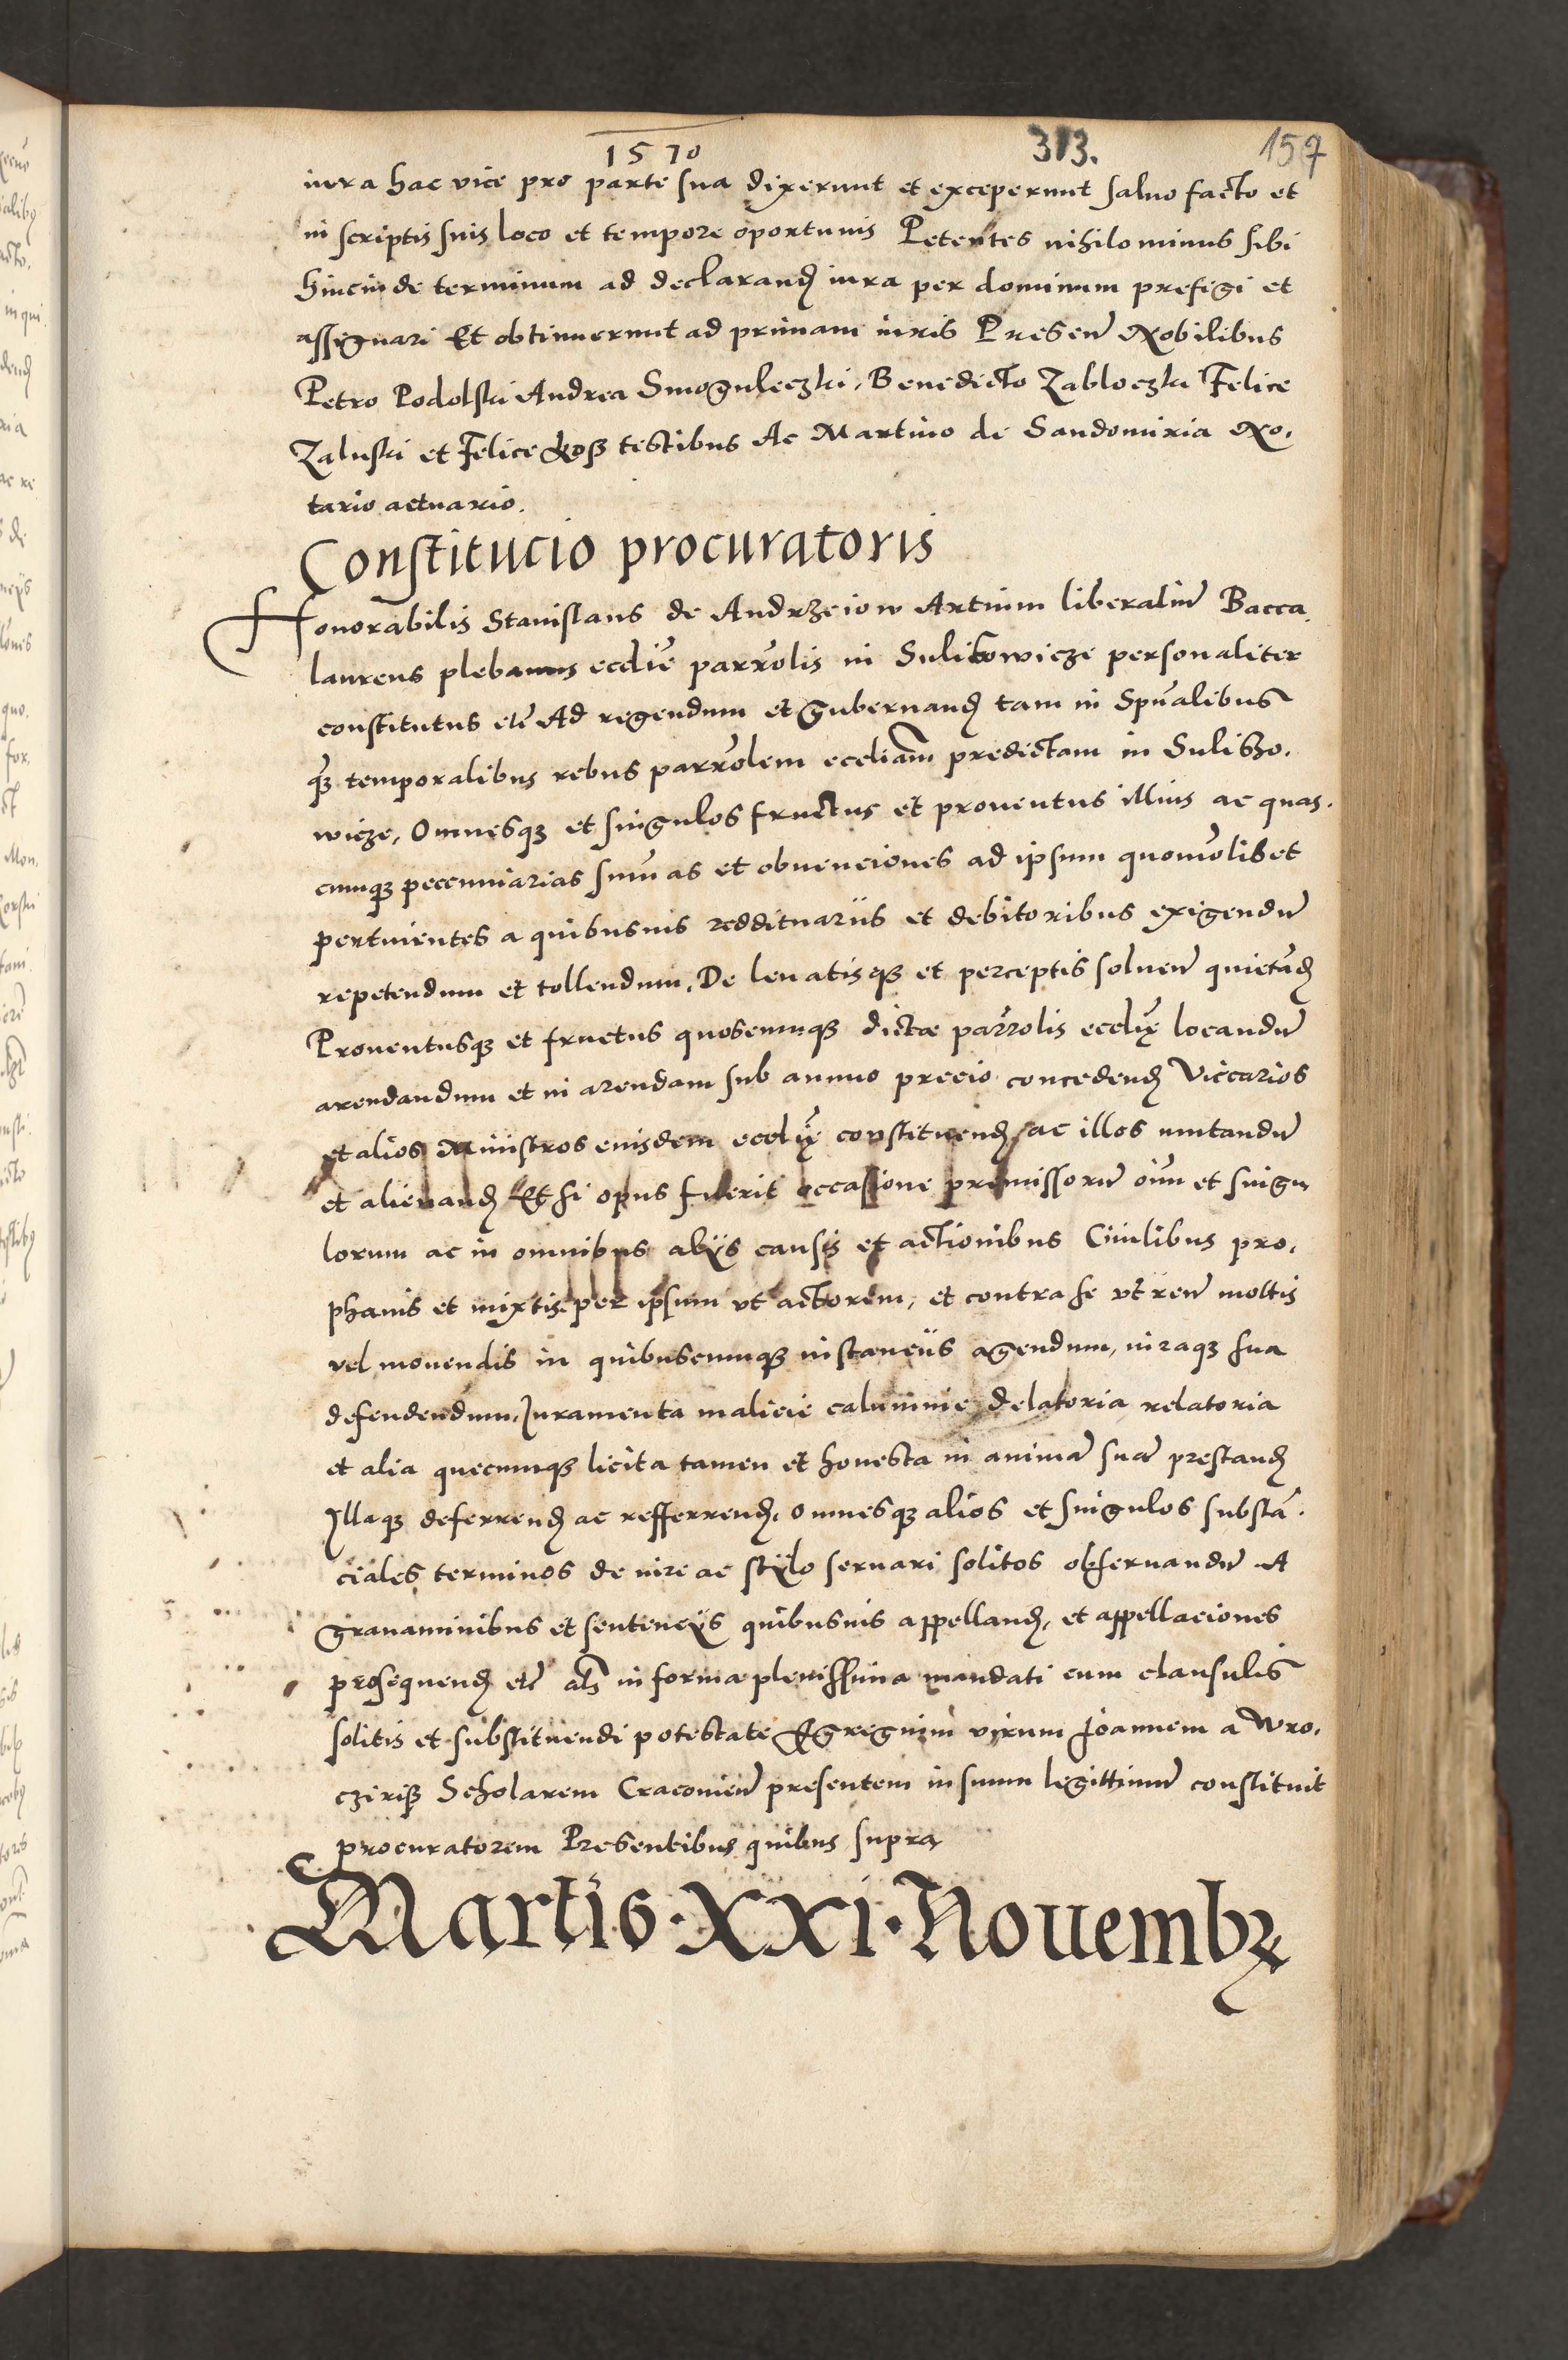 1570 313. 157
iura hac vice pro parte sua dixerunt et exceperunt saluo facto et
in scriptis suis loco et tempore oportunis Petentes nihilominus sibi
hincinde terminum ad declarand iura per dominum prefigi et
assignari Et obtinuerunt ad primam iuris Presen Nobilibus
Petro Podolski Andrea Smoguleczki, Benedicto Zabloczki Felice
Zaluski et Felice testibus Ac Martino de Sandomiria No,
tario actuario.
Constitucio procuratoris
Honorabilis Stanislaus de Andrzeiow Artium liberaliũ Bacca,
laureus plebanus ecclie parrolis in Sulikowicze personaliter
constitutus etc Ad regendum et gubernand tam in Spũalibus
qz temporalibus rebus parrolem eccliam predictam in Suliko,
wicze, Omnesqz et singulos fructus et prouentus illius ac quas,
cunqz peccuniarias sum̃as et obuenciones ad ipsum quomõlibet
pertinentes a quibusuis reddituariis et debitoribus exigendũ
repetendum et tollendum, De leuatisqz et perceptis soluen quietãd
Prouentusqz et fructus quoscunqz dictæ parrolis ecclię locandũ
arendandum et in arendam sub annuo precio concedend Viccarios
et alios Ministros eiusdem ecclię constituend ac illos mutandũ
et alienand Et si opus fuerit occasione premissorũ oĩu et singu,
lorum ac in omnibus aliis causis et actionibus Ciuilibus pro,
phanis et mixtis per ipsum vt actorem, et contra se vt reũ moltis
vel mouendis in quibuscunqz instanciis agendum, iuraqz sua
defendendum, Juramenta malicie calumnie delatoria relatoria
et alia quecunqz licita tamen et honesta in animã suã prestand
Illaqz deferrend ac refferrend, omnesqz alios et singulos substã,
ciales terminos de iure ac stylo seruari solitos obseruandũ A
grauaminibus et sentencys quibusuis appelland, et appellaciones
prosequend etc als in forma plenissima mandati cum clausulis
solitis et substituendi potestate Egregium virum Joannem a Wro,
czirisz Scholarem Cracouien presentem in suum legittimũ constituit
procuratorem Presentibus quibus supra
Martis · XXI · Nouembr